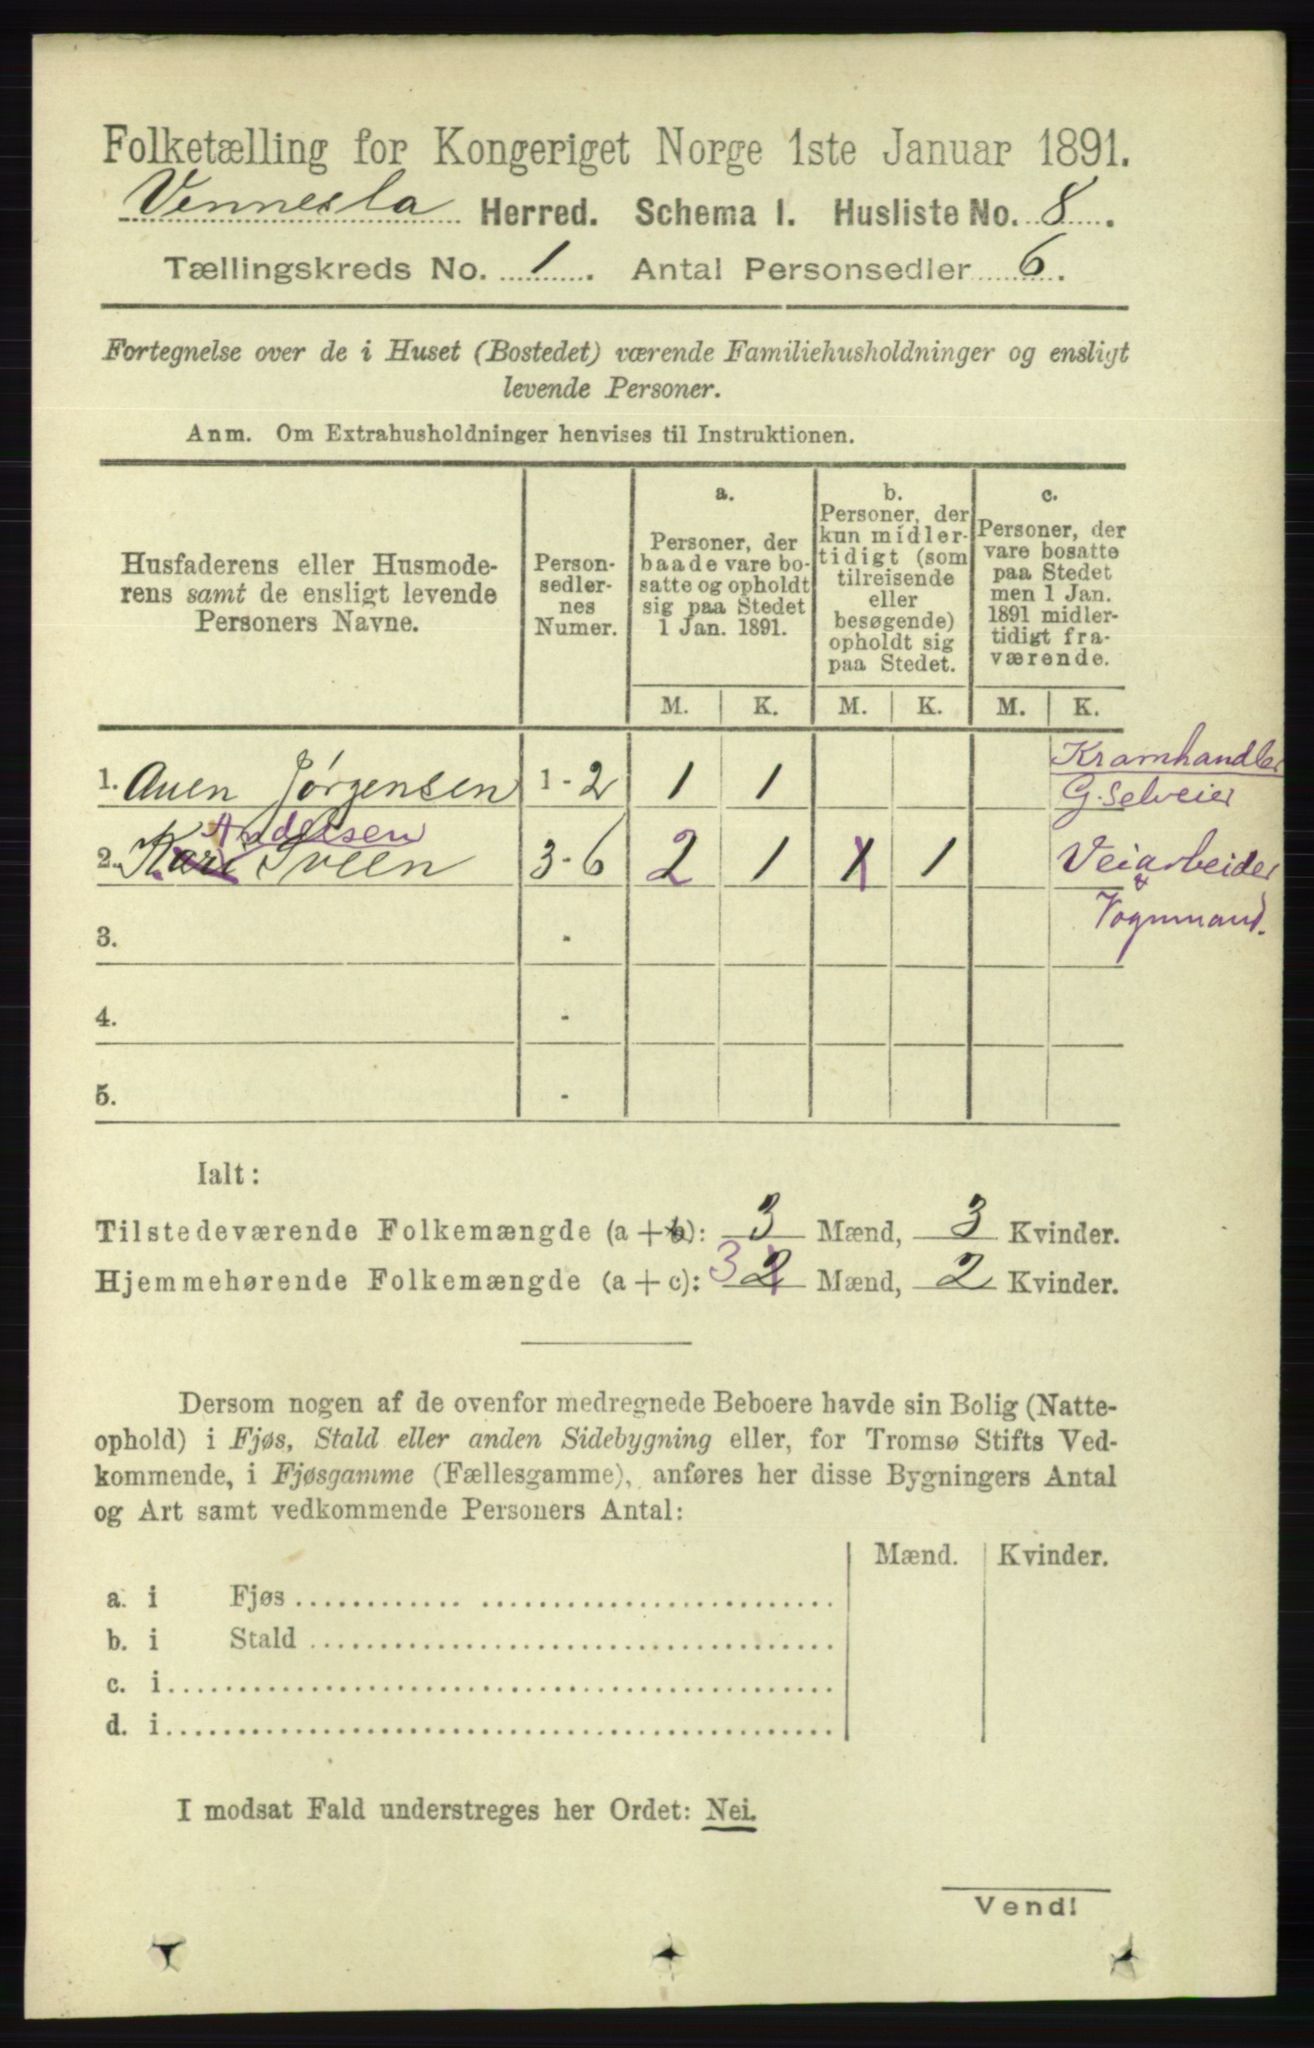 Folketælling for Kongeriget Norge 1ste Januar 1891.
Vennesla Herred. Schema 1. Husliste No. 8.
Tællingskreds No. 1. Antal Personsedler 6.
Fortegnelse over de i Huset (Bostedet) værende Familiehusholdninger og ensligt
levende Personer.
Anm. Om Extrahusholdninger henvises til Instruktionen.
Husfaderens eller Husmode-
rens samt de ensligt levende
Personers Navne.
Person-
sedler-
nes
Numer.
a.
Personer, der
baade vare bo-
satte og opholdt
sig paa Stedet
1 Jan. 1891.
b.
Personer, der
kun midler-
tidigt (som
tilreisende
eller
besøgende)
opholdt sig
paa Stedet.
c.
Personer, der
vare bosatte
paa Stedet
men 1 Jan.
1891 midler-
tidigt fra-
værende.
M. K. M. K. M. K.
1. Auen Jørgensen 1-2 1 1 Kramhandler
G. Selveier
Andersen
2. Kari Sveen 3-6 2 1 1 1 Veiarbeider
&
Vognmand.
3. -
4. -
5. -
Ialt:
Tilstedeværende Folkemængde (a+b): 3 Mænd, 3 Kvinder.
Hjemmehørende Folkemængde (a+c): 3 2 Mænd, 2 Kvinder.
Dersom nogen af de ovenfor medregnede Beboere havde sin Bolig (Natte-
ophold) i Fjøs, Stald eller anden Sidebygning eller, for Tromsø Stifts Ved-
kommende, i Fjøsgamme (Fællesgamme), anføres her disse Bygningers Antal
og Art samt vedkommende Personers Antal:
Mænd. Kvinder.
a. i Fjøs
b. i Stald
c. i
d. i
I modsat Fald understreges her Ordet: Nei.
Vend!